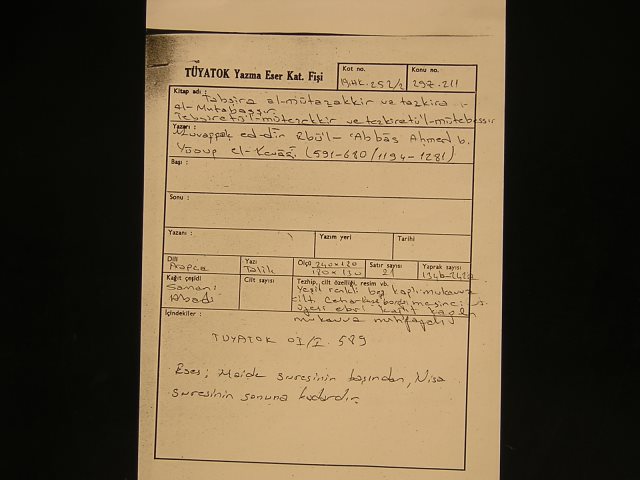 TÜYATOK Yazma Eser Kat. Fişi
Kot no.
19.HK.252/2
Konu no.
297.211
Kitap adı :
Tabsira al-mütazakkir va tazkira
al-Mutabaşşir
Tebsiretü'l-mütezekkir ve tezkiretü'l-mütebessir
Yazarı :
Muvappak ed-dîn Ebü'l-'Abbâs Ahmed b.
Yûsuf el-Kevâşî (591-680/1194-1281)
Başı :
Sonu :
Yazanı :
Yazım yeri
Tarihi
Dili
Arapça
Yazı
Talik
Ölçü 240x180
180x130
Satır sayısı
21
Yaprak sayısı
134b-242a
Kağıt çeşidi
Samani
Abadi
Cilt sayısı
Tezhip, cilt özelliği, resim vb.
Yeşil renkli bez kaplı mukavva
cilt.
üzeri ebri kağıt kaplı
mukavva
İçindekiler :
TÜYATOK 01/I. 589
Eser; Maide suresinin başından, Nisa
suresinin sonuna kadardır.